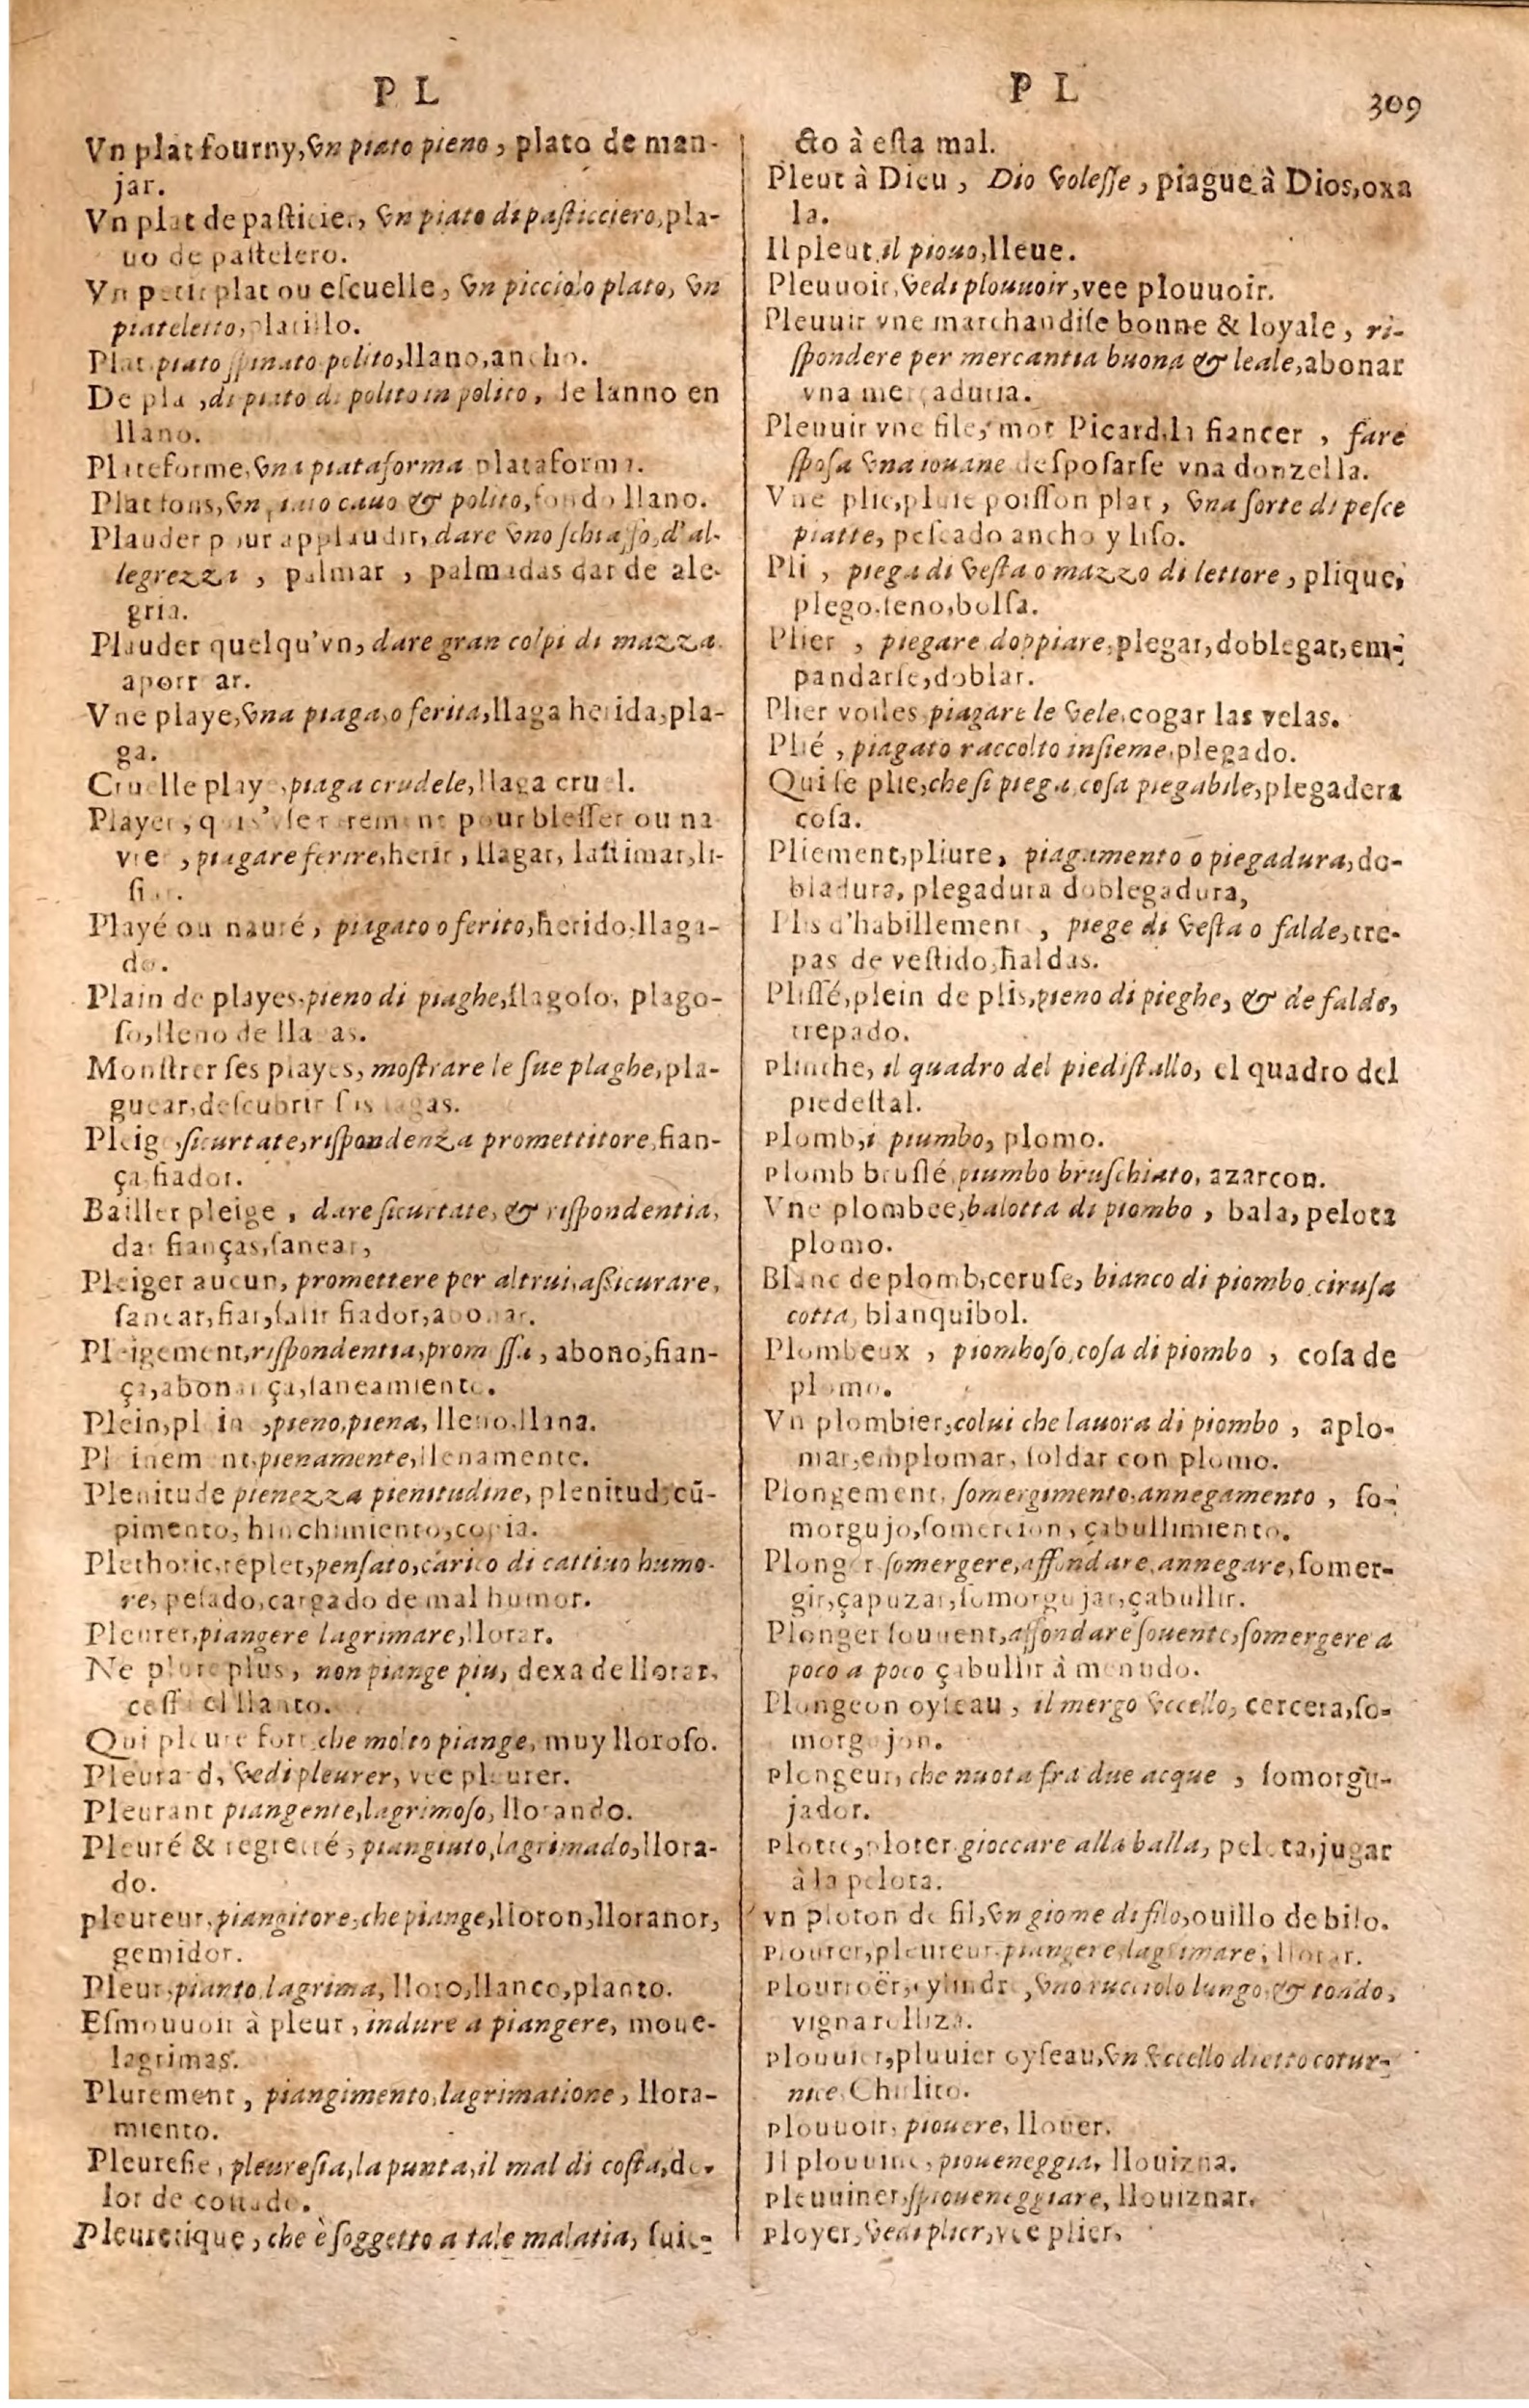 P L
Vn plat fourny, vn piato pieno, plato de man-
jar.
Vn plat de pasticier, vn piato di pasticciero, pla-
uo de pastelero.
Vn petit plat ou escuelle, vn picciolo plato, vn
piateletto, platillo.
Plat piato spinato polito, llano, ancho.
De plat, di piato di polito in polito, de lanno en
llano.
Plateforme, vna piataforma plataforma.
Plat fons, vn cauo & polito, fondo llano.
Plauder pour applaudir, dare vno schiaffo, d'al-
legrezza, palmar, palmadas dar de ale-
gria.
Plauder quelqu'vn, dare gran colpi di mazza
aporrear.
Vne playe, vna piaga, o ferita, llaga herida, pla-
ga.
Cruelle playe, piaga crudele, llaga cruel.
Player, qui s'vse rarement pour blesser ou na
vrer, piagare ferire, herir, llagar, lastimar, li-
siar.
Playé ou nauré, piagato o ferito, herido, llaga-
do.
Plain de playes, pieno di piaghe, llagoso, plago-
so, lleno de llagas.
Monstrer ses playes, mostrare le sue plaghe, pla-
guear, descubrir sus lagas.
Pleige, sicurtate, rispondenza promettitore, fian-
ça, fiador.
Bailler pleige, dare sicurtate, & rispondentia,
dar fianças, sanear,
Pleiger aucun, promettere per altrui, assicurare,
sanear, fiar, salir fiador, abonar.
Pleigement, rispondentia, promessa, abono, fian-
ça, abonança, saneamiento.
Plein, pleine, pieno, piena, lleno, llana.
Pleinement, pienamente, llenamente.
Plenitude pienezza pienitudine, plenitud, cũ-
pimento, hinchimiento, copia.
Plethoric, replet, pensato, carico di cattiuo humo-
re, pesado, cargado de mal humor.
Pleurer, piangere lagrimare, llorar.
Ne plore plus, non piange piu, dexa de llorar,
cessa el llanto.
Qui pleure fort, che molto piange, muy lloroso.
Pleurard, vedi pleurer, vee pleurer.
Pleurant piangente, lagrimoso, llorando.
Pleuré & regretté, piangiuto, lagrimado, llora-
do.
pleureur, piangitore, che piange, lloron, lloranor,
gemidor.
Pleur, pianto, lagrima, lloro, llanco, planto.
Esmouuoir à pleur, indure a piangere, moue-
lagrimas.
Plurement, piangimento, lagrimatione, llora-
miento.
Pleuresie, pleuresia, la punta, il mal di costa, do-
lor de costado.
Pleuretique, che è soggetto a tale malatia, suie-
P L 309
cto à esta mal.
Pleut à Dieu, Dio volesse, piague à Dios, oxa
la.
Il pleut, il piouo, lleue.
Pleuuoir, vedi plouuoir, vee plouuoir.
Pleuuir vne marchandise bonne & loyale, ri-
spondere per mercantia buona & leale, abonar
vna merçaduria.
Pleuuir vne file, mot Picard, la fiancer, fare
sposa vna iouane desposarse vna donzella.
Vne plie, pluie poisson plat, vna sorte di pesce
piatte, pescado ancho y liso.
Pli, piega di vesta o mazzo di lettore, plique,
plego, seno, bolsa.
Plier, piegare doppiare, plegar, doblegar, em-
pandarse, doblar.
Plier voiles, piagare le vele, cogar las velas.
Plié, piagato raccolto insieme, plegado.
Qui se plie, che si piega, cosa piegabile, plegadera
cosa.
Pliement, pliure, piagamento o piegadura, do-
bladura, plegadura doblegadura,
Plis d'habillement, piege di vesta o falde, tre-
pas de vestido, haldas.
Plissé, plein de plis, pieno di pieghe, & de falde,
trepado.
plinthe, il quadro del piedistallo, el quadro del
piedestal.
plomb, i piumbo, plomo.
plomb bruslé, piumbo bruschiato, azarcon.
Vne plombee, balotta di piombo, bala, pelota
plomo.
Blanc de plomb, ceruse, bianco di piombo, cirusa
cotta, blanquibol.
Plombeux, piomboso, cosa di piombo, cosa de
plomo.
Vn plombier, colui che lauora di piombo, aplo-
mar, emplomar, soldar con plomo.
Plongement, somergimento, annegamento, so-
morgujo, somercion, çabullimiento.
Plonger somergere, affondare, annegare, somer-
gir, çapuzar, somorgujar, çabullir.
Plonger souuent, affondare souente, somergere a
poco a poco çabullir à menudo.
Plongeon oyseau, il mergo vccello, cercera, so-
morgujon.
plongeur, che nuota fra due acque, somorgu-
jador.
plotte, ploter gioccare alla balla, pelota, jugar
à la pelota.
vn ploton de fil, vn giome di filo, ouillo de hilo.
plourer, pleureur piangere lagrimare, llorar.
plourroër, cylindre, vno rucciolo lungo, & tondo,
vigna rolliza.
plouuier, pluuier oyseau, vn vccello dietto cotur-
nice, Chirlito.
plouuoir, piouere, llouer.
Il plouuine, pioueneggia, llouizna.
pleuuiner, spioueneggiare, llouiznar.
ployer, vedi plier, vee plier,